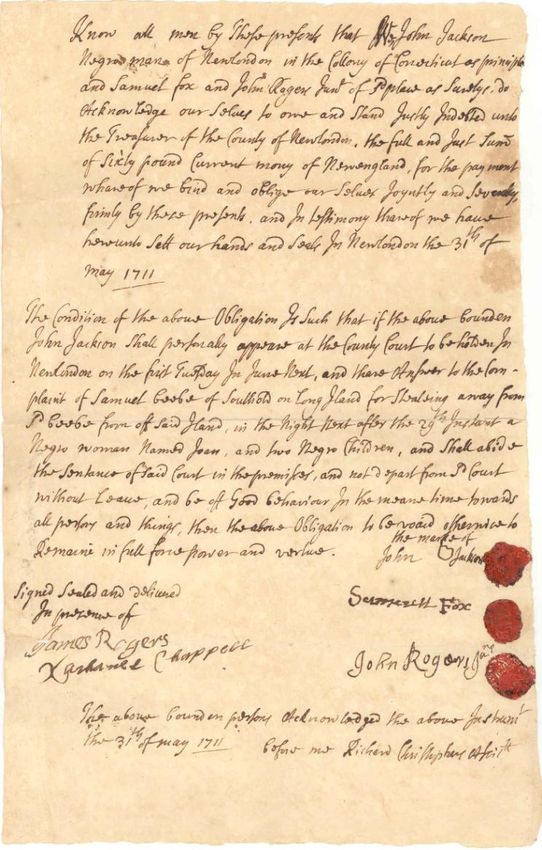 Know all men by These presents that We John Jackson
Negro man of Newlondon in the Collony of Conecticut as principle
and Samuel Fox and John Rogers Junr of sd place as Suretys. do
Acknowledge our Selves to owe and Stand Justly Indebted unto
the Treasurer of the County of Newlondon. the full and Just Sum
of Sixty pound Current mony of Newengland, for the payment
whareof we bind and oblige our Selves Joyntly and Severaly
firmly by these presents. and In testimony thareof we have
hereunto Sett our hands and Seals In Newlondon the 31th of
may 1711
The Condition of the above Obligation Is Such that if the above bounden
John Jackson Shall personally appeare at the County Court to be holden In
Newlondon on the first Tuesday In June Next, and thare Answer to the Com-
plaint of Samuel beebe of Southold on Long Iland for Stealeing away from
sd beebe from off said Iland, in the Night Next after the 29th Instant a
Negro woman Named Joan, and two Negro Children, and Shall abide
the Sentance of said Court in the premises, and not depart from sd Court
without Leave, and be off Good behaviour In the meane time towards
all persons and things, then the above Obligation to be void otherwice to
Remaine in full force power and vertue.
the marke of
John Jackson
Signed Sealed and delivered
In presence of
James Rogers
Chappell
Samuell Fox
John Rogers Junr
The above bounden persons Acknowledged the above Instrumt
the 31th of may 1711 before me Richard Christophers Assistt